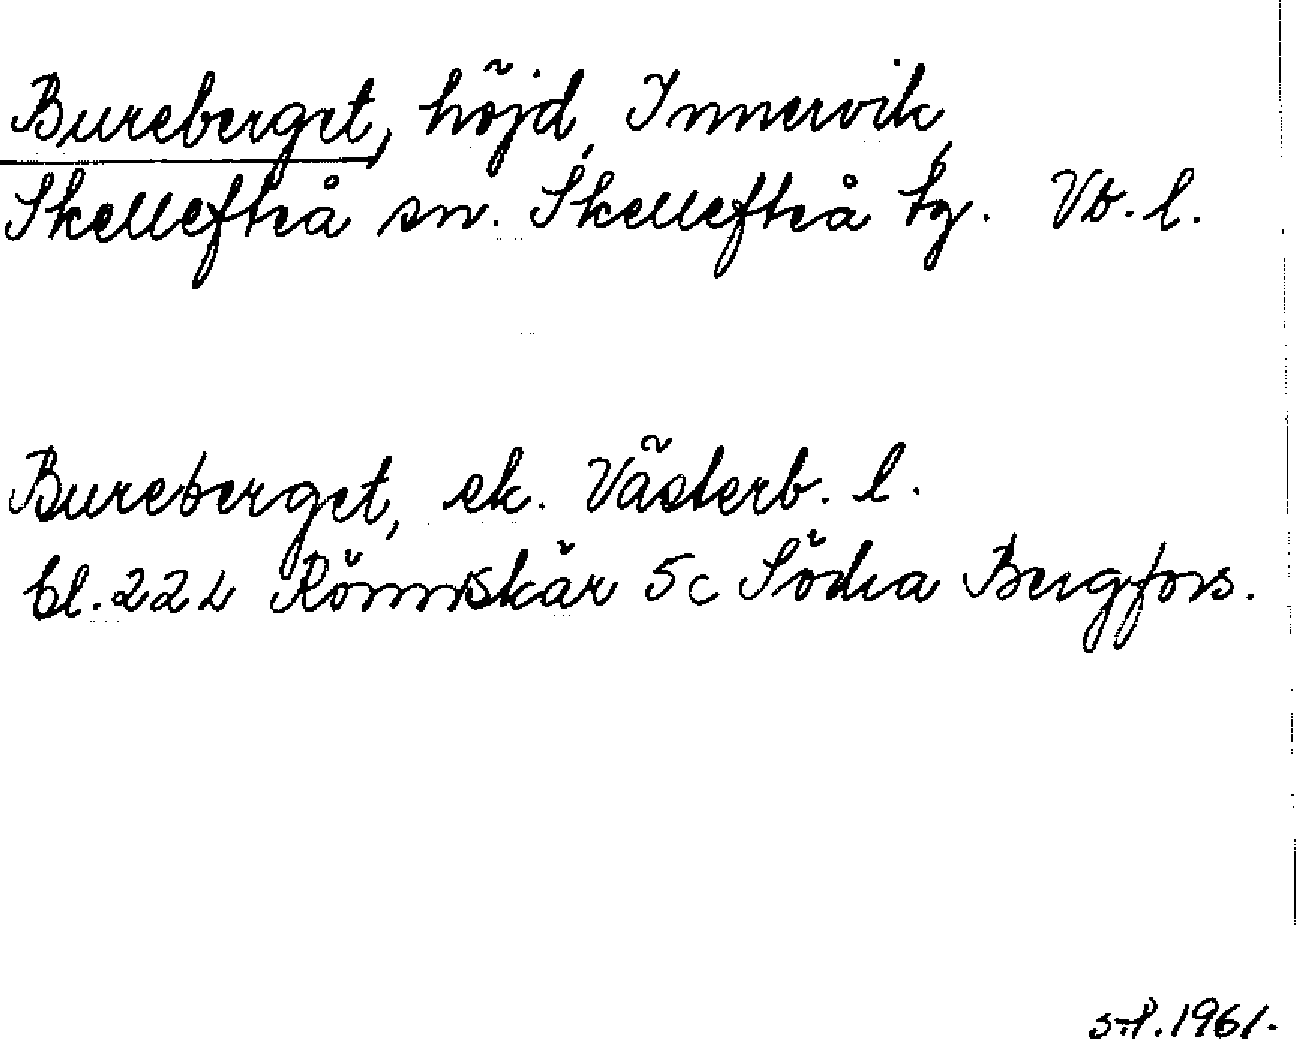 Bureberget, höjd, Innervik,
Skellefteå sn. Skellefteå tg. Vb. l.
Bureberget, ek. Västerb. l.
bl. 22L Rönnskär 5c Södra Bergfors.
1961.